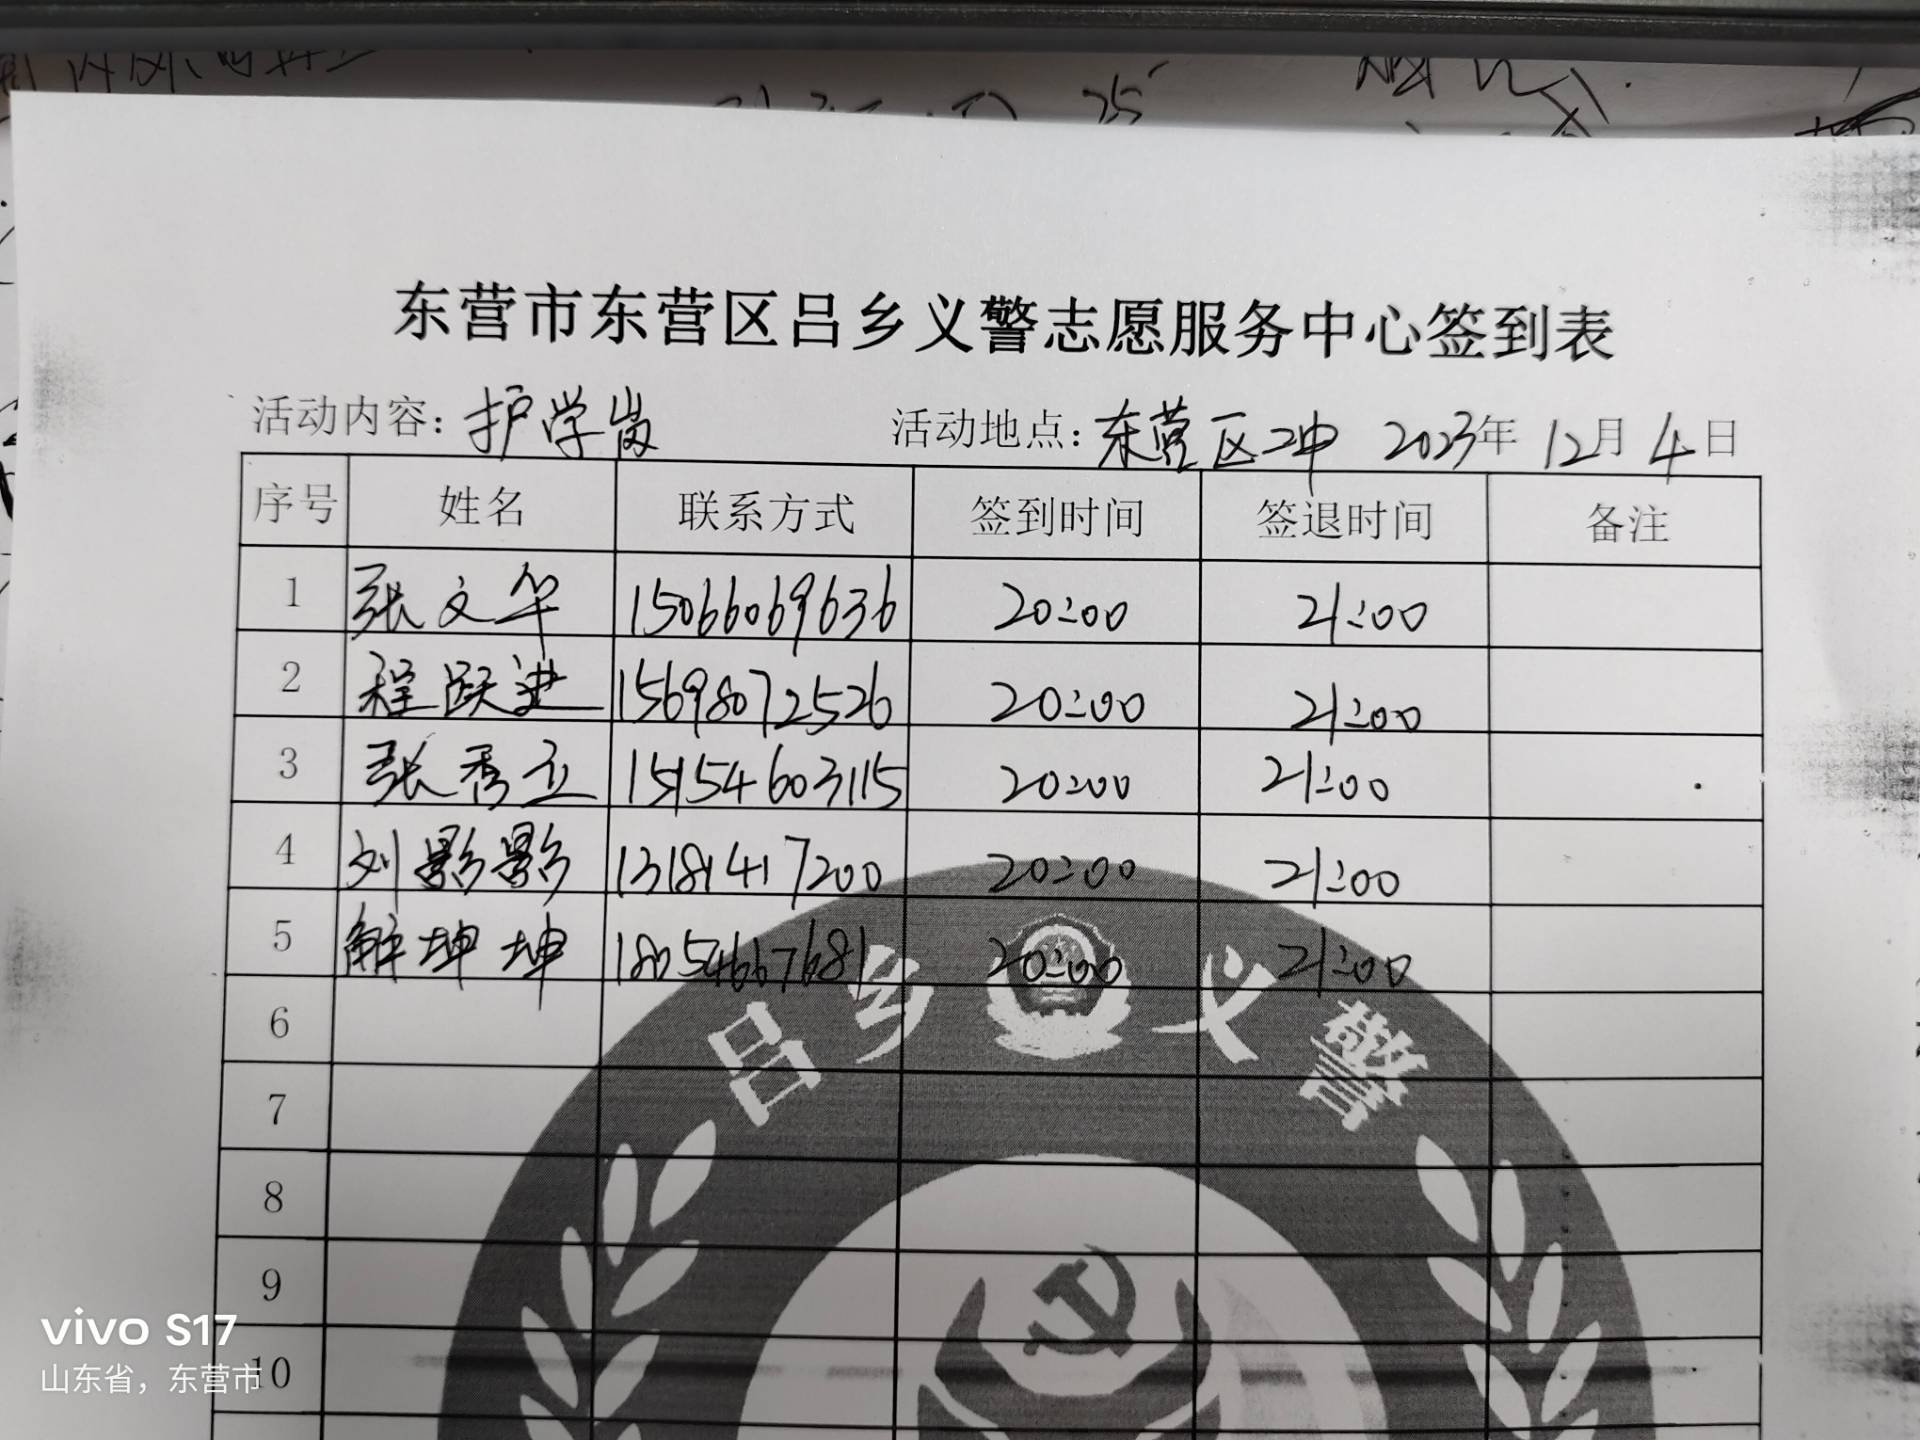 东营市东营区吕乡义警志愿服务中心签到表
活动内容: 护学岗 活动地点: 东营区二中 2023年 12月 4日
序号 姓名 联系方式 签到时间 签退时间 备注
1 张文华 15066069636 20:00 21:00
2 程跃进 15698072526 20:00 21:00
3 张秀立 15154603115 20:00 21:00
4 刘影影 13181417200 20:00 21:00
5 解坤坤 18054667681 20:00 21:00
吕乡义警
6
7
8
9
10
vivo S17
山东省，东营市